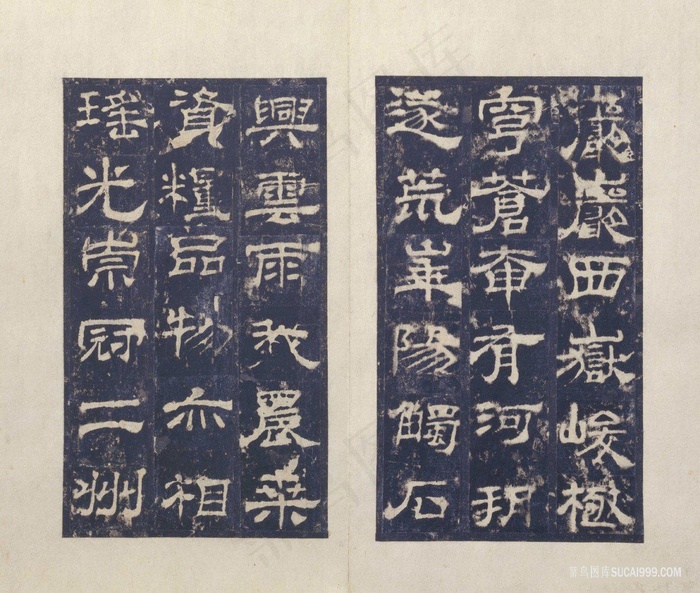 巖巖西嶽峻極
穹蒼奄有河朔
遂荒華陽觸石
興雲雨我農桑
資糧品物亦相
瑤光崇冠二州
菜鸟图库SUCAI999.COM